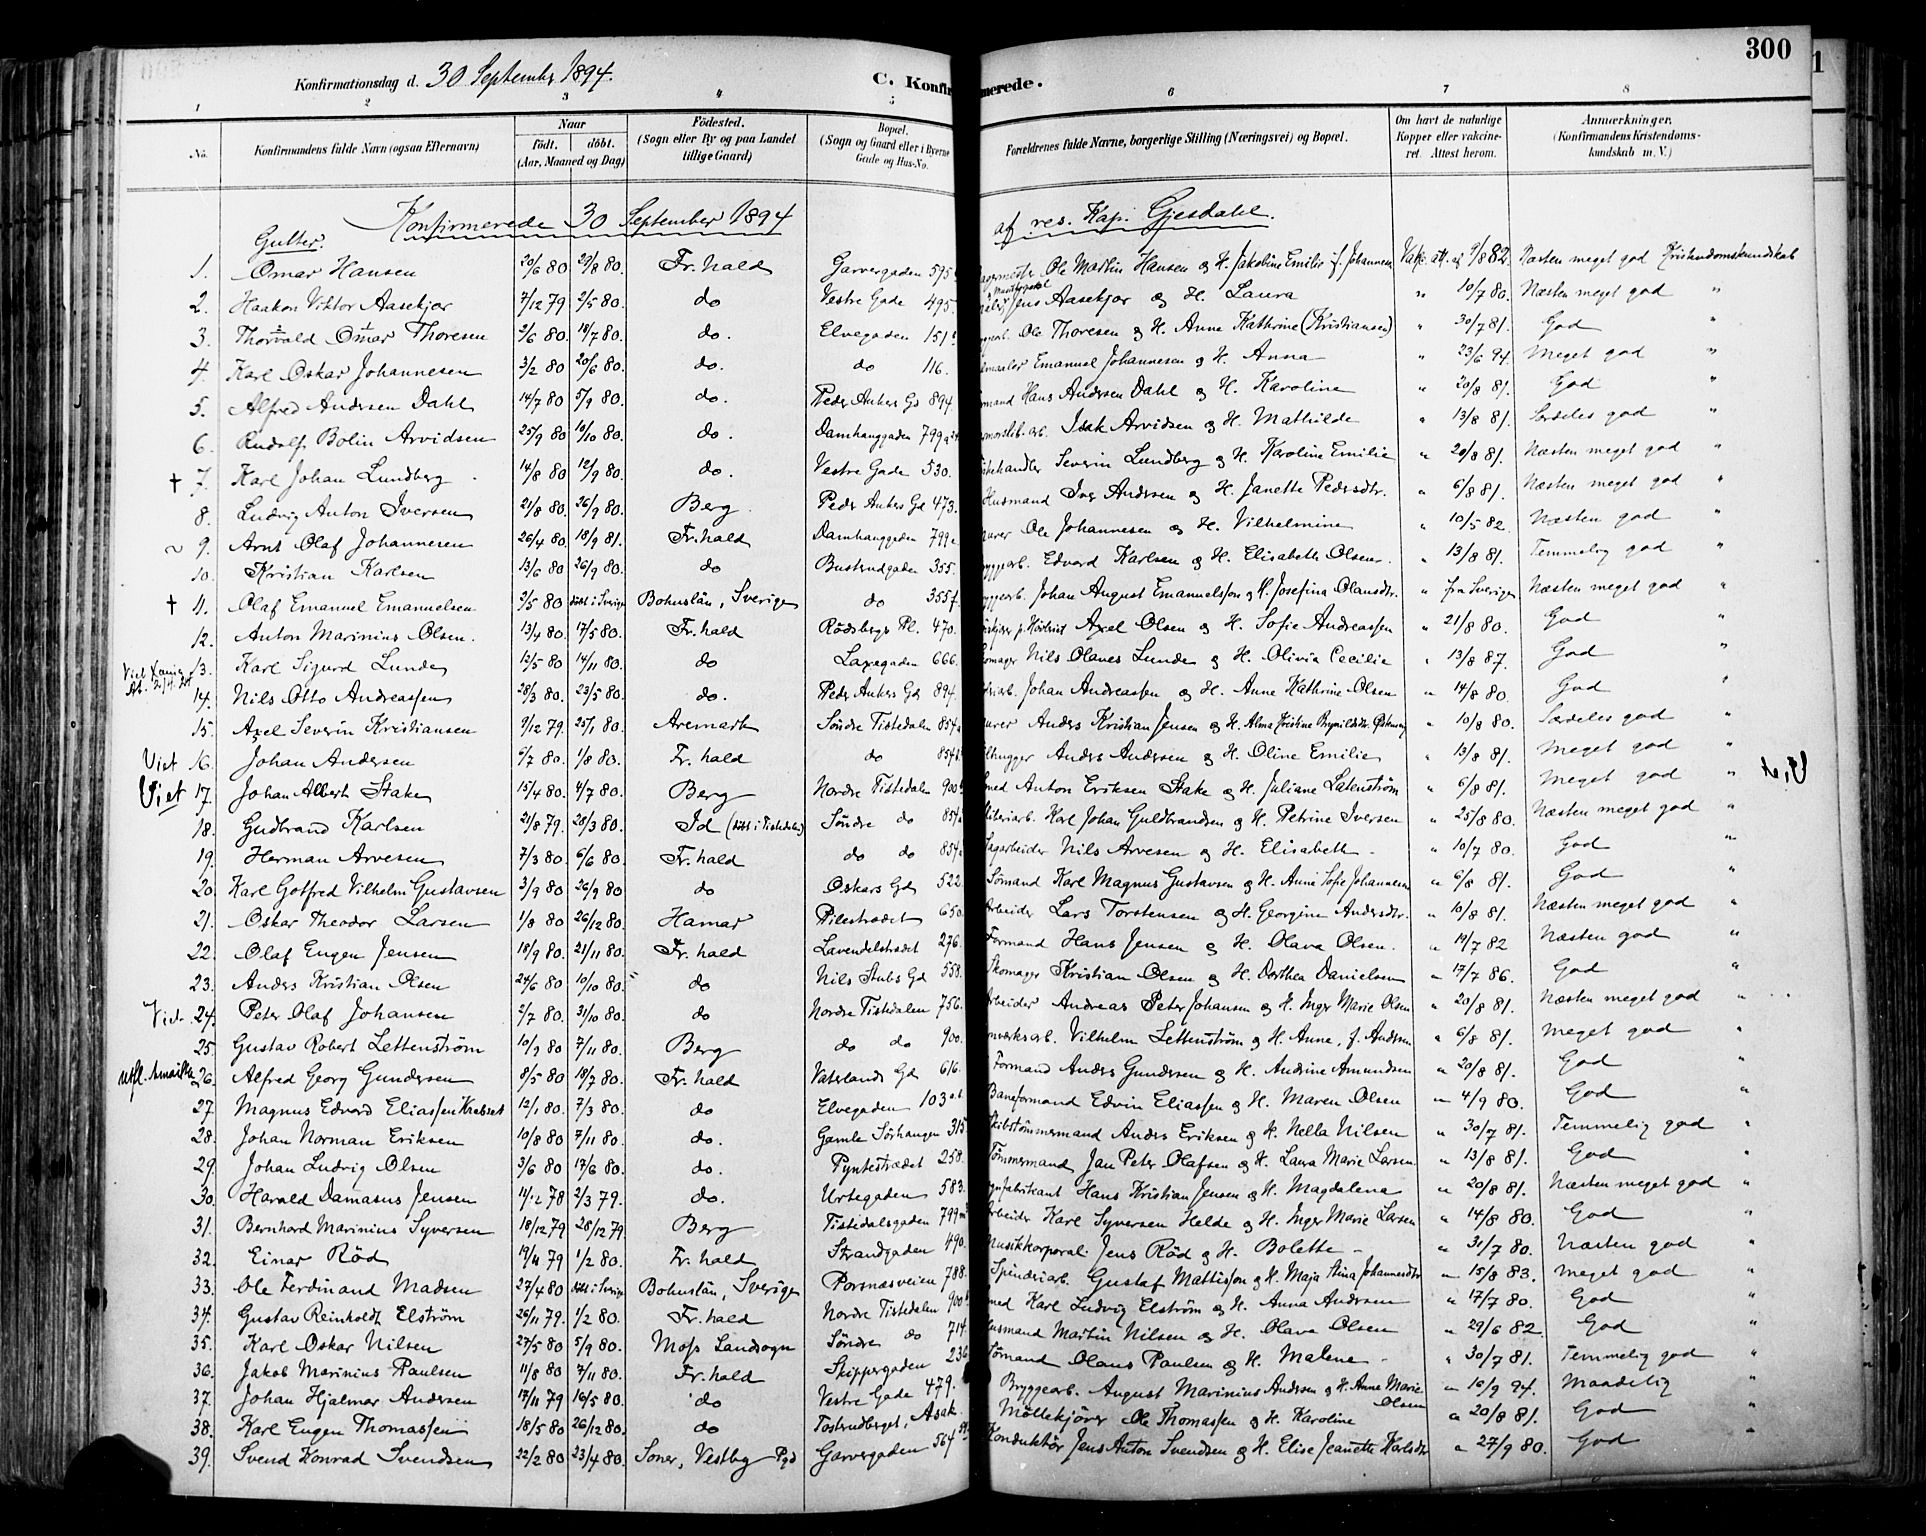 300
Konfirmationsdag d. 30 September 1894.
C. Konfirmerede.
1 2 3 4 5 6 7 8
No. Konfirmandens fulde Navn (ogsaa Efternavn) Naar født. døbt. (Aar, Maaned og Dag) Fødested. (Sogn eller By og paa Landet tillige Gaard) Bopæl. (Sogn og Gaard eller i Byerne Gade og Hus-No. Forældrenes fulde Navne, borgerlige Stilling (Næringsvei) og Bopæl. Om havt de naturlige Kopper eller vakcineret. Attest herom. Anmærkninger, (Konfirmandens Kristendomskundskab m. V.)
Konfirmerede 30 September 1894 af res. Kap. Gjesdahl.
Gutter.
1. Omar Hansen 20/6 80 29/8 80. Fr.hald Garvergaden 595 Ole Martin Hansen & H. Jakobine Emilie f. Johannesen Vakc. att. af 9/8 82. Næsten meget god Kristendomskundskab
2. Haakon Viktor Aasekjær 7/12 79 2/5 80. do Vestre Gade 495. Jens Aasekjær & H. Laura " 10/7 80. Næsten meget god "
3. Thorvald Omar Thoresen 2/6 80 18/7 80. do. Elvegaden 151 Ole Thoresen & H. Anne Kathrine (Kristiansen) " 30/7 81. God "
4. Karl Oskar Johannesen 3/2 80 20/6 80. do. do 116. Emanuel Johannesen & H. Anna " 23/6 94. Meget god "
5. Alfred Andersen Dahl 14/7 80 5/9 80. do. Peder Ankers Gd 894. Hans Andersen Dahl & H. Karoline " 20/8 81. God "
6. Rudolf Bolin Arvidsen 25/9 80 10/10 80. do. Damhauggaden 799 Isak Arvidsen & H. Mathilde " 13/8 81. Særdeles god "
† 7. Karl Johan Lundberg 14/8 80 12/9 80. do. Vestre Gade 530. Severin Lundberg & H. Karoline Emilie " 20/8 81. Næsten meget god "
8. Ludvig Anton Iversen 21/8 80 26/9 80. Berg Peder Ankers Gd 473. Husmand Iver Andersen & H. Janette Pedersdtr. " 6/8 81. Næsten meget god "
~ 9. Arnt Olaf Johannesen 26/4 80. 18/9 81. Fr.hald Damhauggaden 799 Ole Johannesen & H. Vilhelmine " 10/5 82. Næsten god "
10. Kristian Karlsen 13/6 80 26/9 80. do Busterudgaden 355. Edvard Karlsen & H. Elisabeth Olsen " 13/8 81. Temmelig god "
† 11. Olaf Emanuel Emanuelsen 2/5 80 døbt i Sverige Bohuslän, Sverige do 355f. Johan August Emanuelsson & H. Josefina Olausdtr. " fra Sverige Næsten meget god "
12. Anton Marinius Olsen. 13/4 80. 17/5 80. Fr.hald Rødsbergs Pl. 470. Axel Olsen & H. Sofie Andreassen " 21/8 80. God "
13. Karl Sigurd Lunde 12/5 80 14/11 80. do Laxegaden 666. Nils Olaves Lunde & H. Olivia Cecilie " 13/8 87. God "
14. Nils Otto Andreassen 28/3 80. 23/5 80. do. Peder Ankers Gd 894. Johan Andreassen & H. Anne Kathrine Olsen " 14/8 80. God "
15. Axel Severin Kristiansen 9/12 79 25/1 80. Aremark Søndre Tistedalen 854 Anders Kristian Jensen & H. Alma Kristine " 10/8 80. Særdeles god "
Viet 16. Johan Andersen 6/7 80. 1/8 80. Fr. hald do 854 Anders Andersen & H. Oline Emilie " 13/8 81. Meget god "
Viet 17. Johan Albert Stake 15/4 80. 4/7 80. Berg Nordre Tistedalen 900 Anton Eriksen Stake & H. Juliane Latenstrøm " 6/8 81. Meget god " Viet
18. Gudbrand Karlsen 21/8 79. 28/3 80. Id (døbt i Tistedalen) Søndre do 854 Karl Johan Guldbrandsen & H. Petrine Iversen " 25/8 80. Næsten meget god "
19. Herman Arvesen 7/3 80. 6/6 80. Fr. hald do do 854 Sagarbeider Nils Arvesen & H. Elisabeth " 10/7 80. God "
20. Karl Gotfred Vilhelm Gustavsen 3/9 80 26/9 80 do Oskars Gd 522. Sømand Karl Magnus Gustavsen & H. Anne Sofie Johannesen " 6/8 81. God "
21. Oskar Theodor Larsen 1/8 80 26/12 80. Hamar Pilestrædet 650. Arbeider Lars Torstensen & H. Georgine Andersdtr. " 10/8 81. Næsten meget god "
22. Olaf Eugen Jensen 18/9 80. 21/11 80. Fr. hald Lavendelstrædet 276. Formand Hans Jensen & H. Olava Olsen. " 19/7 82 Næsten god "
23. Anders Kristian Olsen 24/6 80 10/10 80. do Nils Stubs Gd 558. Skomager Kristian Olsen & H. Dorthea Danielsen " 17/7 86. God "
Viet 24. Peter Olaf Johansen 2/7 80. 31/10 80. do Nordre Tistedalen 756. Arbeider Andreas Peter Johansen & H. Inger Marie Olsen " 20/8 81. Næsten meget god "
25. Gustav Robert Lettenstrøm 10/9 80 7/11 80. Berg do do 900. Vilhelm Lettenstrøm & H. Anne, f. Andersen " 6/8 81. Meget god "
utfl. Amerika 26. Alfred Georg Gundersen 8/5 80 18/7 80. Fr. hald Vaterlands Gd 616. Formand Anders Gundersen & H. Andrine Amundsen " 20/8 81. God "
27. Magnus Edvard Eliassen 12/1 80. 7/3 80. do Elvegaden 103 Baneformand Edvin Eliassen & H. Maren Olsen " 4/9 80. God "
28. Johan Norman Eriksen 10/8 80 7/11 80. do. Gamle Sørhaugen 315 Skibstømmermand Anders Eriksen & H. Nella Nilsen " 30/7 81. Temmelig god "
29. Johan Ludvig Olsen 3/6 80 17/6 80. do. Pyntestrædet 258. Tømmermand Jan Peter Olafsen & H. Laura Marie Larsen " 13/8 81. God "
30. Harald Damasus Jensen 11/12 78 2/3 79. do. Urtegaden 583. Hans Kristian Jensen & H. Magdalena " 20/8 81. Næsten meget god "
31. Bernhard Marinius Syversen 18/12 79 28/12 79. Berg Tistedalsgaden 799 Arbeider Karl Syversen Helde & H. Inger Marie Larsen " 14/8 80. God "
32. Einar Rød 19/11 79 1/2 80. Fr. hald Strandgaden 490. Musikkorporal Jens Rød & H. Bolette " 31/7 80. Næsten god "
33. Ole Ferdinand Madsen 27/4 80 døbt i Sverige Bohuslän, Sverige Porsnæsveien 788. Spinderiarb. Gustaf Mattisson & H. Maja Stina Johannesdtr " 15/8 83. Meget god "
34. Gustav Reinholdt Elstrøm 26/11 79. 1/2 80. Fr. hald Nordre Tistedalen 900 Karl Ludvig Elstrøm & H. Anna Andersen " 17/7 80. God "
35. Karl Oskar Nilsen 27/5 80 5/9 80. Moss Landsogn Søndre do 714. Husmand Martin Nilsen & H. Olava Olsen " 29/6 82. God "
36. Jakob Marinius Paulsen 11/8 80 7/11 80. Fr. hald Skippergaden 236 Sømand Olaus Paulsen & H. Malene " 30/7 81. Temmelig god "
37. Johan Hjalmar Andersen 17/11 79 16/5 80. do Vestre Gade 479. Bryggearb. August Marinius Andersen & H. Anne Marie Olsen " 16/9 94. Maadelig "
38. Karl Eugen Thomassen 18/5 80 26/12 80. do Tostrudberget, Asak Møllekjører Ole Thomassen & H. Karoline " 20/8 81. God "
39. Svend Konrad Svendsen 22/2 80 23/4 80. Soner, Vestby Pgd Garvergaden 564 Konduktør Jens Anton Svendsen & H. Elise Jeanette Karlsdtr " 27/9 80. God "